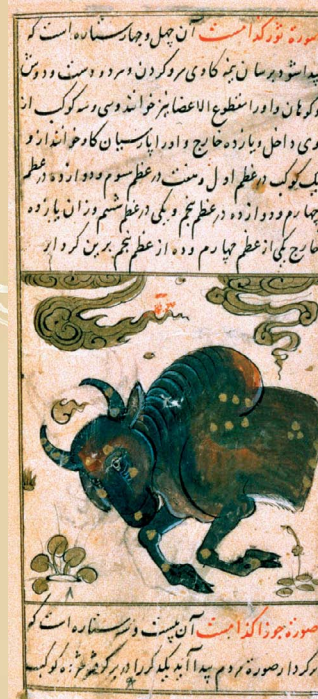 صورة ثور کدامست آن چهل و چهار ستاره است که
پیدا شود بر سان نیمه کاوی سر و کردن و سر و دست و دوش
و کوهان و او را منقطع الاعضا نیز خوانند و سی و سه کوکب از
وی داخل و یازده خارج و او را پاسبان کاو خوانند از و
یک کوکب در عظم اول و هفت در عظم سوم و دوازده در عظم
چهارم و دوازده در عظم پنجم و یکی در عظم ششم و زان یازده
خارج یکی از عظم چهارم و ده از عظم پنجم برین کردار
صورة جوزا کدامست آن بیست و سه ستاره است که
بر کردار صورة مردم پیدا آید یکدیکر را در بر گرفته